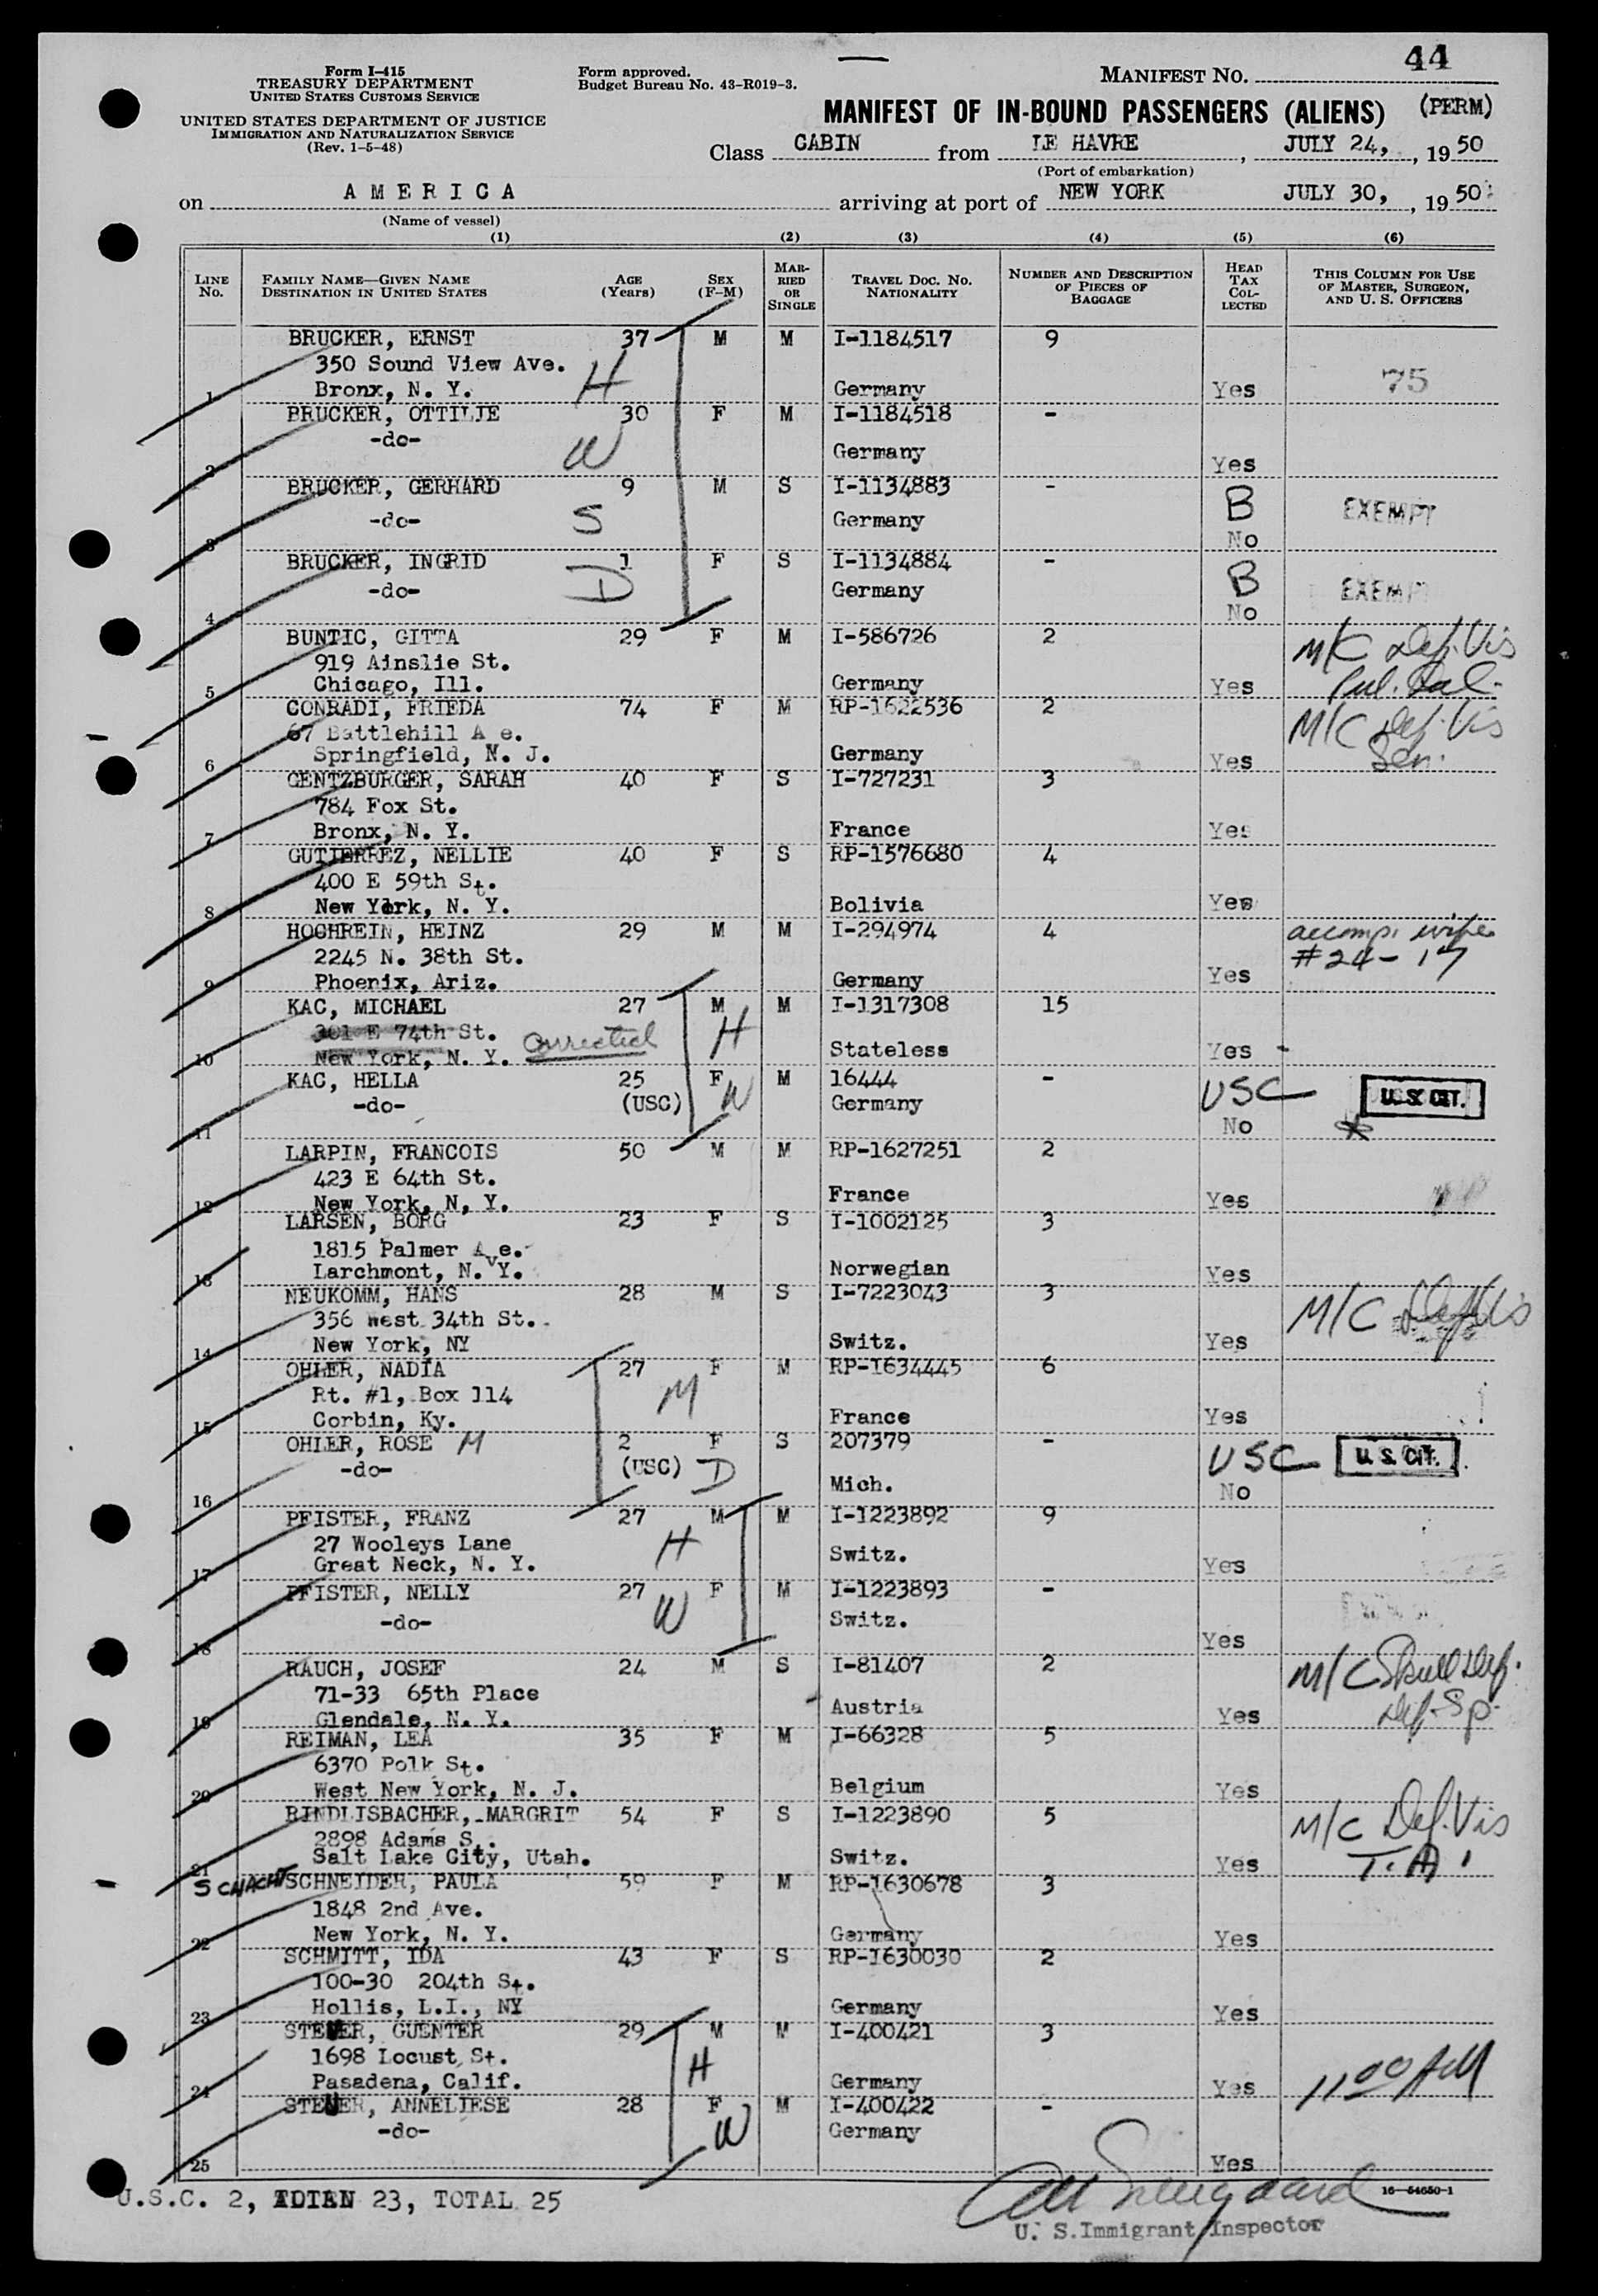 44
Form I-415
TREASURY DEPARTMENT
UNITED STATES CUSTOMS SERVICE
UNITED STATES DEPARTMENT OF JUSTICE
IMMIGRATION AND NATURALIZATION SERVICE
(Rev. 1-5-48)
Form approved.
Budget Bureau No. 43-R019-3.
MANIFEST NO.
MANIFEST OF IN-BOUND PASSENGERS (ALIENS) (PERM)
Class CABIN from LE HAVRE, JULY 24, , 1950
(Port of embarkation)
on AMERICA arriving at port of NEW YORK JULY 30, , 1950
(Name of vessel)
(1) (2) (3) (4) (5) (6)
LINE No. FAMILY NAME—GIVEN NAME DESTINATION IN UNITED STATES AGE (Years) SEX (F-M) MARRIED OR SINGLE TRAVEL DOC. NO. NATIONALITY NUMBER AND DESCRIPTION OF PIECES OF BAGGAGE HEAD TAX COLLECTED THIS COLUMN FOR USE OF MASTER, SURGEON, AND U. S. OFFICERS
BRUCKER, ERNST 37 M M I-1184517 9
350 Sound View Ave.
1 Bronx, N. Y. H Germany Yes 75
BRUCKER, OTTILIE 30 F M I-1184518 -
-do-
2 W Germany Yes
BRUCKER, GERHARD 9 M S I-1134883 -
-do- S Germany B EXEMPT
3 No
BRUCKER, INGRID 1 F S I-1134884 -
-do- D Germany B EXEMPT
4 No
BUNTIC, GITTA 29 F M I-586726 2 M/C Def. Vis
919 Ainslie St.
5 Chicago, Ill. Germany Yes
CONRADI, FRIEDA 74 F M RP-1622536 2 M/C Def. Vis
67 Battlehill A e. Sen.
6 Springfield, N. J. Germany Yes
GENTZBURGER, SARAH 40 F S I-727231 3
784 Fox St.
7 Bronx, N. Y. France Yes
GUTIERREZ, NELLIE 40 F S RP-1576680 4
400 E 59th St.
8 New York, N. Y. Bolivia Yes
HOCHREIN, HEINZ 29 M M I-294974 4 accomp. wife
2245 N. 38th St. #24-17
9 Phoenix, Ariz. Germany Yes
KAC, MICHAEL 27 M M I-1317308 15
301 E 74th St. Corrected H
10 New York, N. Y. Stateless Yes -
KAC, HELLA 25 F M 16444 -
-do- (USC) W Germany USC U.S. CIT.
11 No *
LARPIN, FRANCOIS 50 M M RP-1627251 2
423 E 64th St.
12 New York, N. Y. France Yes
LARSEN, BORG 23 F S I-1002125 3
1815 Palmer Ave.
13 Larchmont, N. Y. Norwegian Yes
NEUKOMM, HANS 28 M S I-7223043 3 M/C Def Vis
356 West 34th St.
14 New York, NY Switz. Yes
OHLER, NADIA 27 F M RP-1634445 6
Rt. #1, Box 114 M
15 Corbin, Ky. France Yes
OHLER, ROSE M 2 F S 207379 -
-do- (USC) D USC U. S. CIT.
16 Mich. No
PFISTER, FRANZ 27 M M I-1223892 9
27 Wooleys Lane H Switz.
17 Great Neck, N. Y. Yes
PFISTER, NELLY 27 F M I-1223893 -
-do- W Switz.
18 Yes
RAUCH, JOSEF 24 M S I-81407 2 M/C Skull Def.
71-33 65th Place Austria Def. Sp.
19 Glendale, N. Y. Yes
REIMAN, LEA 35 F M I-66328 5
6370 Polk St.
20 West New York, N. J. Belgium Yes
RINDLISBACHER, MARGRIT 54 F S I-1223890 5 M/C Def. Vis
2898 Adams S .
21 Salt Lake City, Utah. Switz. Yes T.A.
SCHACHT SCHNEIDER, PAULA 59 F M RP-1630678 3
1848 2nd Ave.
22 New York, N. Y. Germany Yes
SCHMITT, IDA 43 F S RP-1630030 2
100-30 204th St.
23 Hollis, L.I., NY Germany Yes
STEUER, GUENTER 29 M M I-400421 3
1698 Locust St. H
24 Pasadena, Calif. Germany Yes 11 00 AM
STEUER, ANNELIESE 28 F M I-400422 -
-do- W Germany
25 Yes
U.S.C. 2, ALIEN 23, TOTAL 25
16—54650-1
U. S. Immigrant Inspector